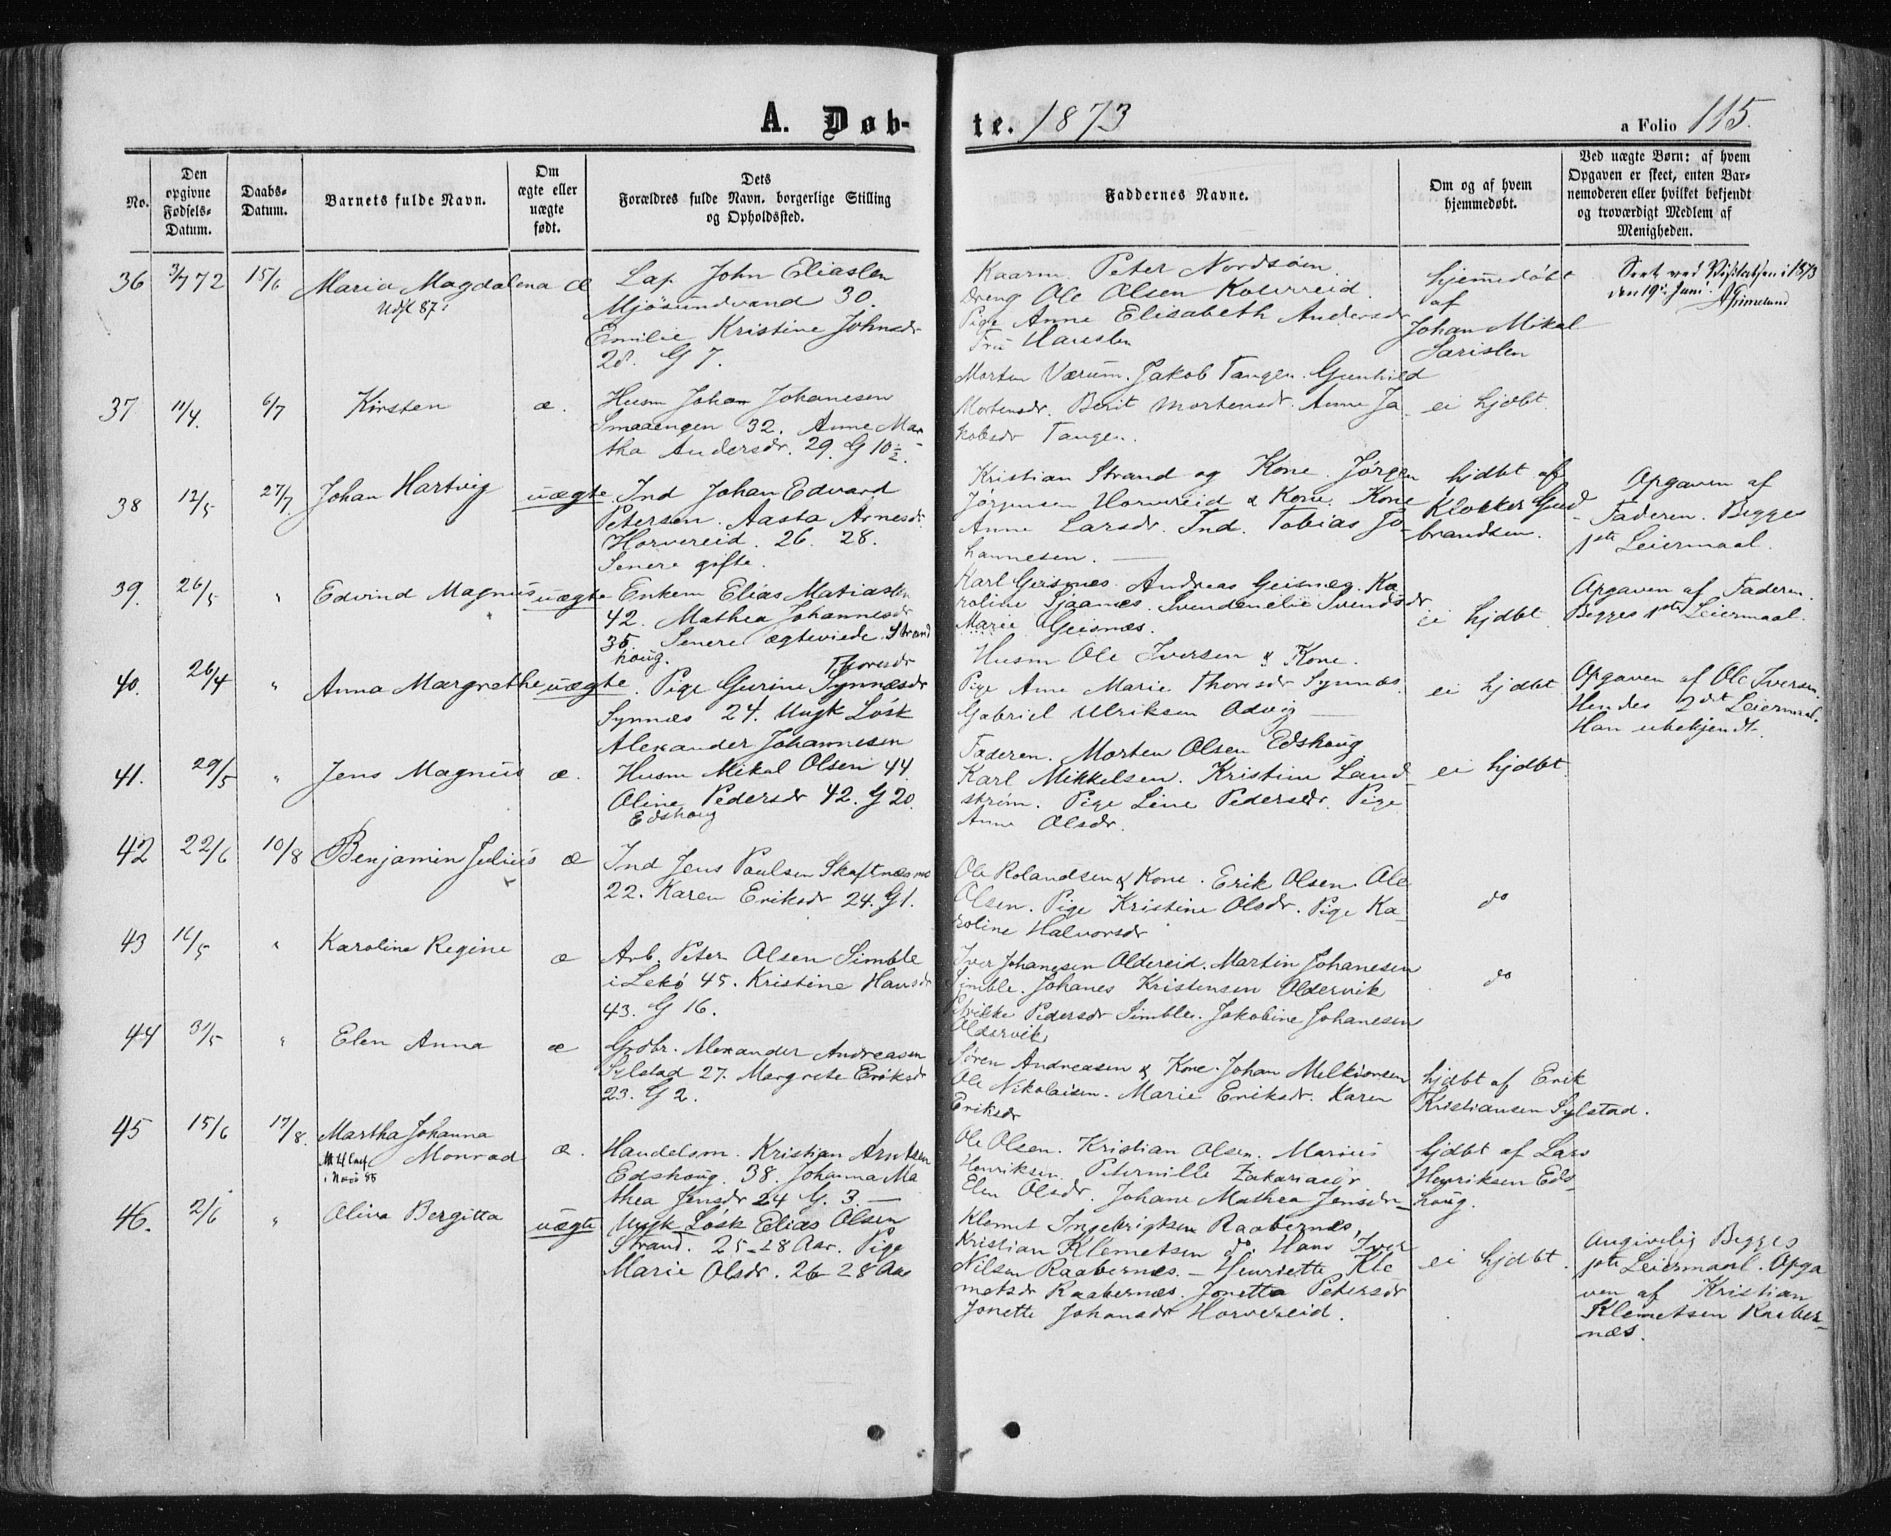 A. Døb-
te. 1873
a Folio 115.
No.
Den
opgivne
Fødsels-
Datum.
Daabs-
Datum.
Barnets fulde Navn.
Om
ægte eller
uægte
født.
Dets
Forældres fulde Navn, borgerlige Stilling
og Opholdssted.
Faddernes Navne.
Om og af hvem
hjemmedøbt.
Ved uægte Børn: af hvem
Opgaven er skeet, enten Bar-
nemoderen eller hvilket bekjendt
og troværdigt Medlem af
Menigheden.
36 3/7 72 15/6 Maria Magdalena æ
Udfl 87.
Lap John Eliassen
Mjösundvand 30.
Emilie Kristine Johnsdr
28. G 7.
Kaarm. Peter Nordsöen.
Dreng Ole Olsen Kolvereid.
Pige Anne Elisabeth Andersdr
Fru Hanssen
hjemmedøbt
af
Johan Mikal
Sarissen
Seet ved Visitatsen i 1873
den 19de Juni.
37 11/4. 6/7 Kirsten æ.
Husm Johan Johanesen
Smaaengen 32. Anne Mar-
tha Andersdr. 29. G 10 1/2.
Morten Værum. Jakob Tangen. Gunhild
Mortensdr. Berit Mortensdr. Anne Ja-
kobsdr Tangen.
ei hjdbt.
38 12/5 27/7 Johan Hartvig uægte
Ind Johan Edvard
Petersen. Aasta Arnesdr.
Horvereid. 26. 28.
Senere gifte.
Kristian Strand og Kone. Jørgen
Jørgensen Horvereid & Kone. Kone
Anne Larsdr. Ind. Tobias Jo-
hannesen.
hjdbt af
Klokker Gud-
brandsen.
Opgaven af
Faderen. Begges
1ste Leiermaal.
39. 26/5 " Edvind Magnus uægte
Enkem Elias Matiassen
42. Mathea Johannesdr
35. Senere ægteviede. Strand
houg.
Karl Geisnes. Andreas Geisnes. Ka-
roline Sjaanes. Svendsdr
Marie Geisnæs.
ei hjdbt
Opgaven af Faderen.
Begges 1ste Leiermaal.
40. 26/4 " Anna Margrethe uægte.
Thoresdr
Pige Gurine Synnæsdr
Synnæs 24. Ungk Løsk
Alexander Johannesen
Husm Ole Iversen & Kone.
Pige Anne Marie Thoresdr Synnes.
Gabriel Ulriksen Advig
ei hjdbt
Opgaven af Ole Iversen.
Hendes 2det Leiermaal.
Han ubekjendt.
41. 29/5 " Jens Magnus æ.
Husm Mikal Olsen 44
Oline Pedersdr 42. G 20.
Edshoug
Faderen. Morten Olsen Edshoug
Karl Mikkelsen. Kristine Land-
strøm. Pige Line Pedersdr. Pige
Anne Olsdr.
ei hjdbt
42 22/6 10/8 Benjamin Julius æ
Ind Jens Paulsen Skaftnæs
22. Karen Eriksdr 24. G 1.
Ole Rolandsen & Kone. Erik Olsen. Ole
Olsen. Pige Kristine Olsdr. Pige Ka-
roline Halvorsdr
do
43 16/5 " Karoline Regine æ
Arb. Peter Olsen Simble
i Lekø 45. Kristine Hansdr
43. G 16.
Iver Johanesen Oldereid. Martin Johanesen
Simble. Johanes Kristensen Oldervik
Pedersdr Simble. Jakobine Johanesen
Oldervik
do
44 31/5 " Elen Anna æ
Grdbr. Alexander Andreasen
Sylstad 27. Margrete Eriksdr
23. G 2.
Søren Andreasen & Kone. Johan Melkiorsen
Ole Nikolaisen. Marie Eriksdr. Karen
Eriksdr
hjdbt af Erik
Kristiansen Sylstad.
45 15/6 17/8. Martha Johanna
Monrad æ.
Handelsm. Kristian Arntsen
Edshoug. 38. Johanna Ma
thea Jensdr 24 G. 3
Ole Olsen. Kristian Olsen. Marius
Henriksen. Peternille Zakariasdr.
Elen Olsdr. Johane Mathea Jensdr
hjdbt af Lars
Henriksen Eds-
houg.
46. 2/6 " Olina Bergitta uægte
Ungk Løsk Elias Olsen
Strand. 25-28 Aar. Pige
Marie Olsdr. 26-28 Aar
Klemet Ingebrigtsen Raabernæs,
Kristian Klemetsen do Hans Iver
Nilsen Raabernæs. - Henriette Kle
metsdr Raabernæs. Jonetta Petersdr
Jonette Johansdr Horvereid.
ei hjdbt.
Angivelig Begges
1ste Leiermaal. Opga
ven af Kristian
Klemetsen Raaber-
næs.